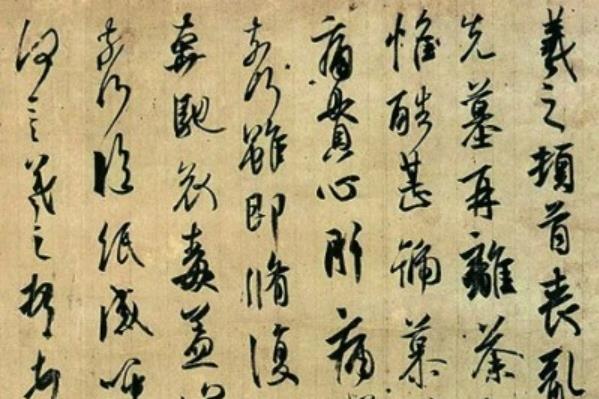 羲之頓首喪亂
先墓再離荼
惟酷甚號慕
痛貫心肝痛
奈何雖即脩復
奔馳哀毒益
奈何臨紙感哽
何言羲之頓首